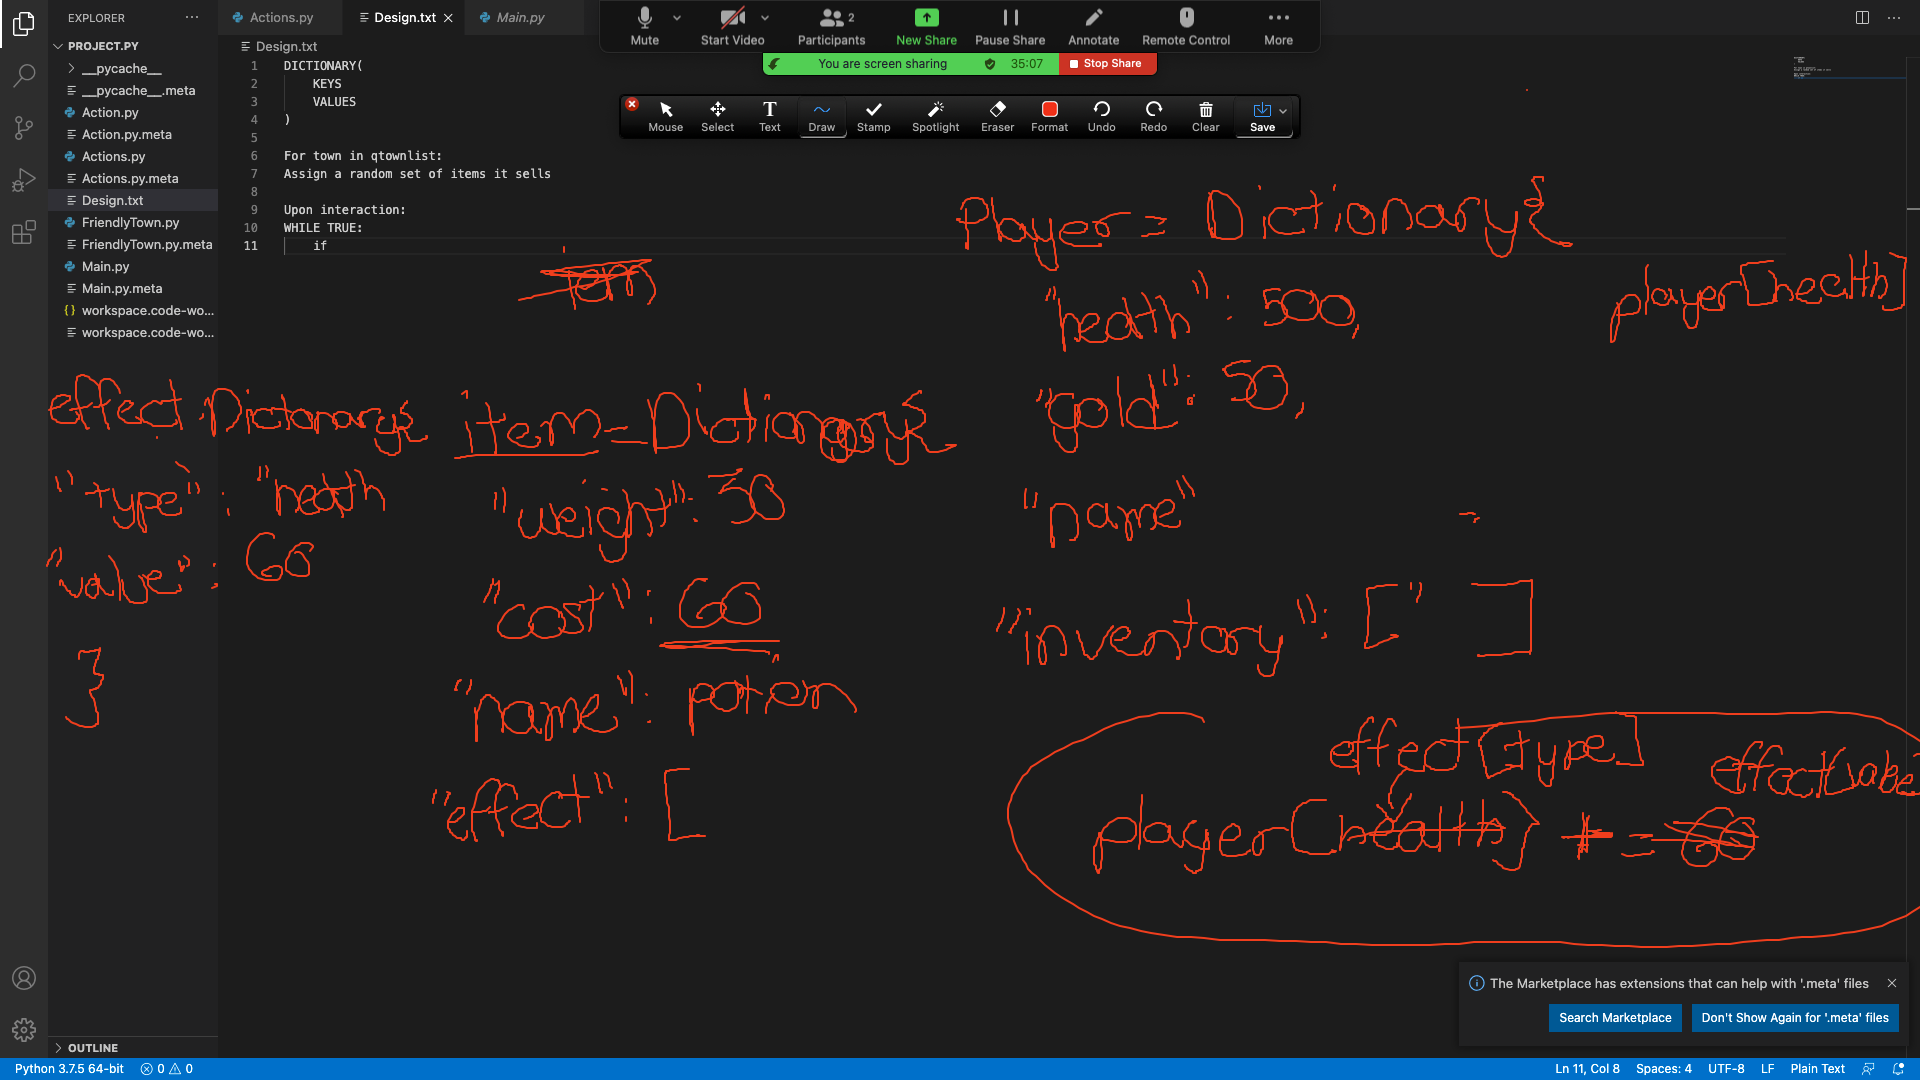 EXPLORER
PROJECT.PY
__pycache__
__pycache__.meta
Action.py
Action.py.meta
Actions.py
Actions.py.meta
Design.txt
FriendlyTown.py
FriendlyTown.py.meta
Main.py
Main.py.meta
workspace.code-wo...
workspace.code-wo...
OUTLINE
Actions.py Design.txt Main.py
Design.txt
Mute Start Video Participants 2 New Share Pause Share Annotate Remote Control More
You are screen sharing 35:07 Stop Share
Mouse Select Text Draw Stamp Spotlight Eraser Format Undo Redo Clear Save
1 DICTIONARY(
2 KEYS
3 VALUES
4 )
5
6 For town in qtownlist:
7 Assign a random set of items it sells
8
9 Upon interaction:
10 WHILE TRUE:
11 if
Player = Dictionary{
"health": 500,
"gold": 50,
"name"
"inventory": [" ]
player[health]
effect: Dictionary{
"type": "health
"value": 60
}
item = Dictionary{
"weight": 30
"cost": 60
"name": potion
"effect": [
effect[type]
player[health] += 60
The Marketplace has extensions that can help with '.meta' files
Search Marketplace Don't Show Again for '.meta' files
Python 3.7.5 64-bit 0 0 Ln 11, Col 8 Spaces: 4 UTF-8 LF Plain Text